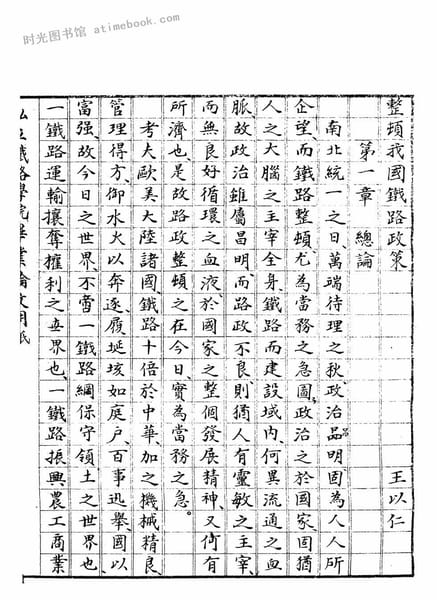 时光图书馆 atimebook.com
整頓我國鐵路政策 王以仁
第一章 總論
南北統一之日、萬端待理之秋、政治品明固為人人所
企望、而鐵路整頓、尤為當務之急圖、政治之於國家固猶
人之大腦之主宰全身、鐵路而建設域內、何異流通之血
脈、故政治雖屬昌明、而路政不良、則猶人有靈敏之主宰、
而無良好循環之血液、於國家之整個發展精神、又何有
所濟也、是故路政整頓之在今日、實為當務之急。
考夫歐美大陸諸國、鐵路十倍於中華、加之機械精良、
管理得方、御水火以奔逐、履埏垓如庭戶、百事迅舉、國以
富强、故今日之世界、不雪一鐵路綱保守領土之世界也、
一鐵路運輸攘奪權利之世界也、一鐵路振興農工商業
私立鐵路學院畢業論文用紙